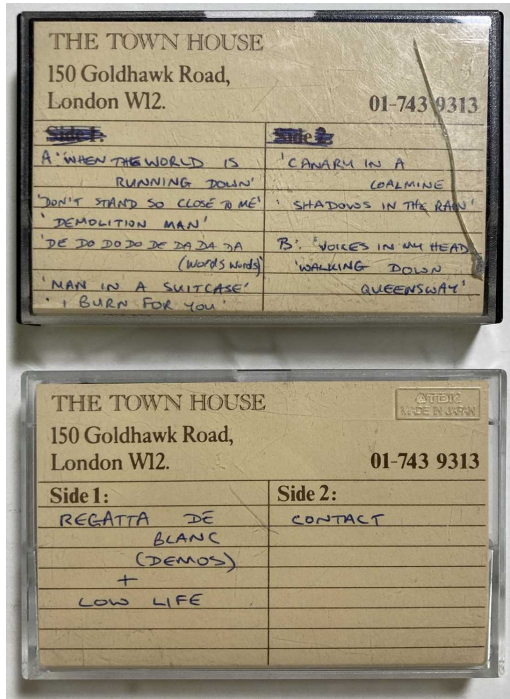 THE TOWN HOUSE
150 Goldhawk Road,
London W12.
01-743 9313
Side 1:
Side 2:
A 'WHEN THE WORLD IS
RUNNING DOWN'
'DON'T STAND SO CLOSE TO ME'
'DEMOLITION MAN'
'DE DO DO DO DE DA DA DA
(WORDS WORDS)
'MAN IN A SUITCASE'
'I BURN FOR YOU'
'CANARY IN A
COALMINE
'SHADOWS IN THE RAIN'
B: 'VOICES IN MY HEAD
'WALKING DOWN
QUEENSWAY'
THE TOWN HOUSE
150 Goldhawk Road,
London W12.
MADE IN JAPAN
01-743 9313
Side 1:
REGATTA DE
BLANC
(DEMOS)
+
LOW LIFE
Side 2:
CONTACT